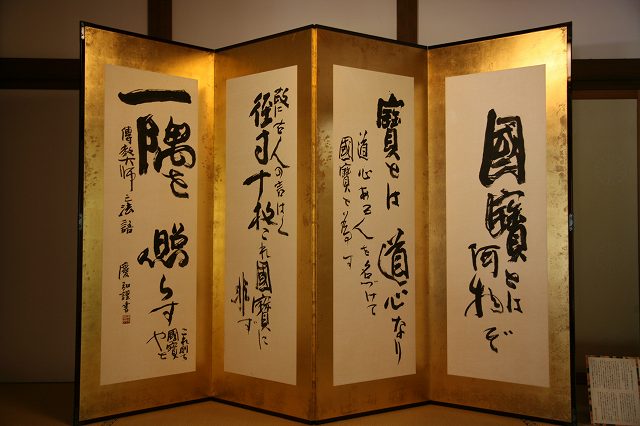 國寶とは
何物ぞ
寶とは道心なり
道心ある人を名づけて
國寶と為す
故に古人の言はく
径寸十枚これ國寶に
非ず
一隅を
照らす
これ則ち
國寶
傳教大師法語
謹書